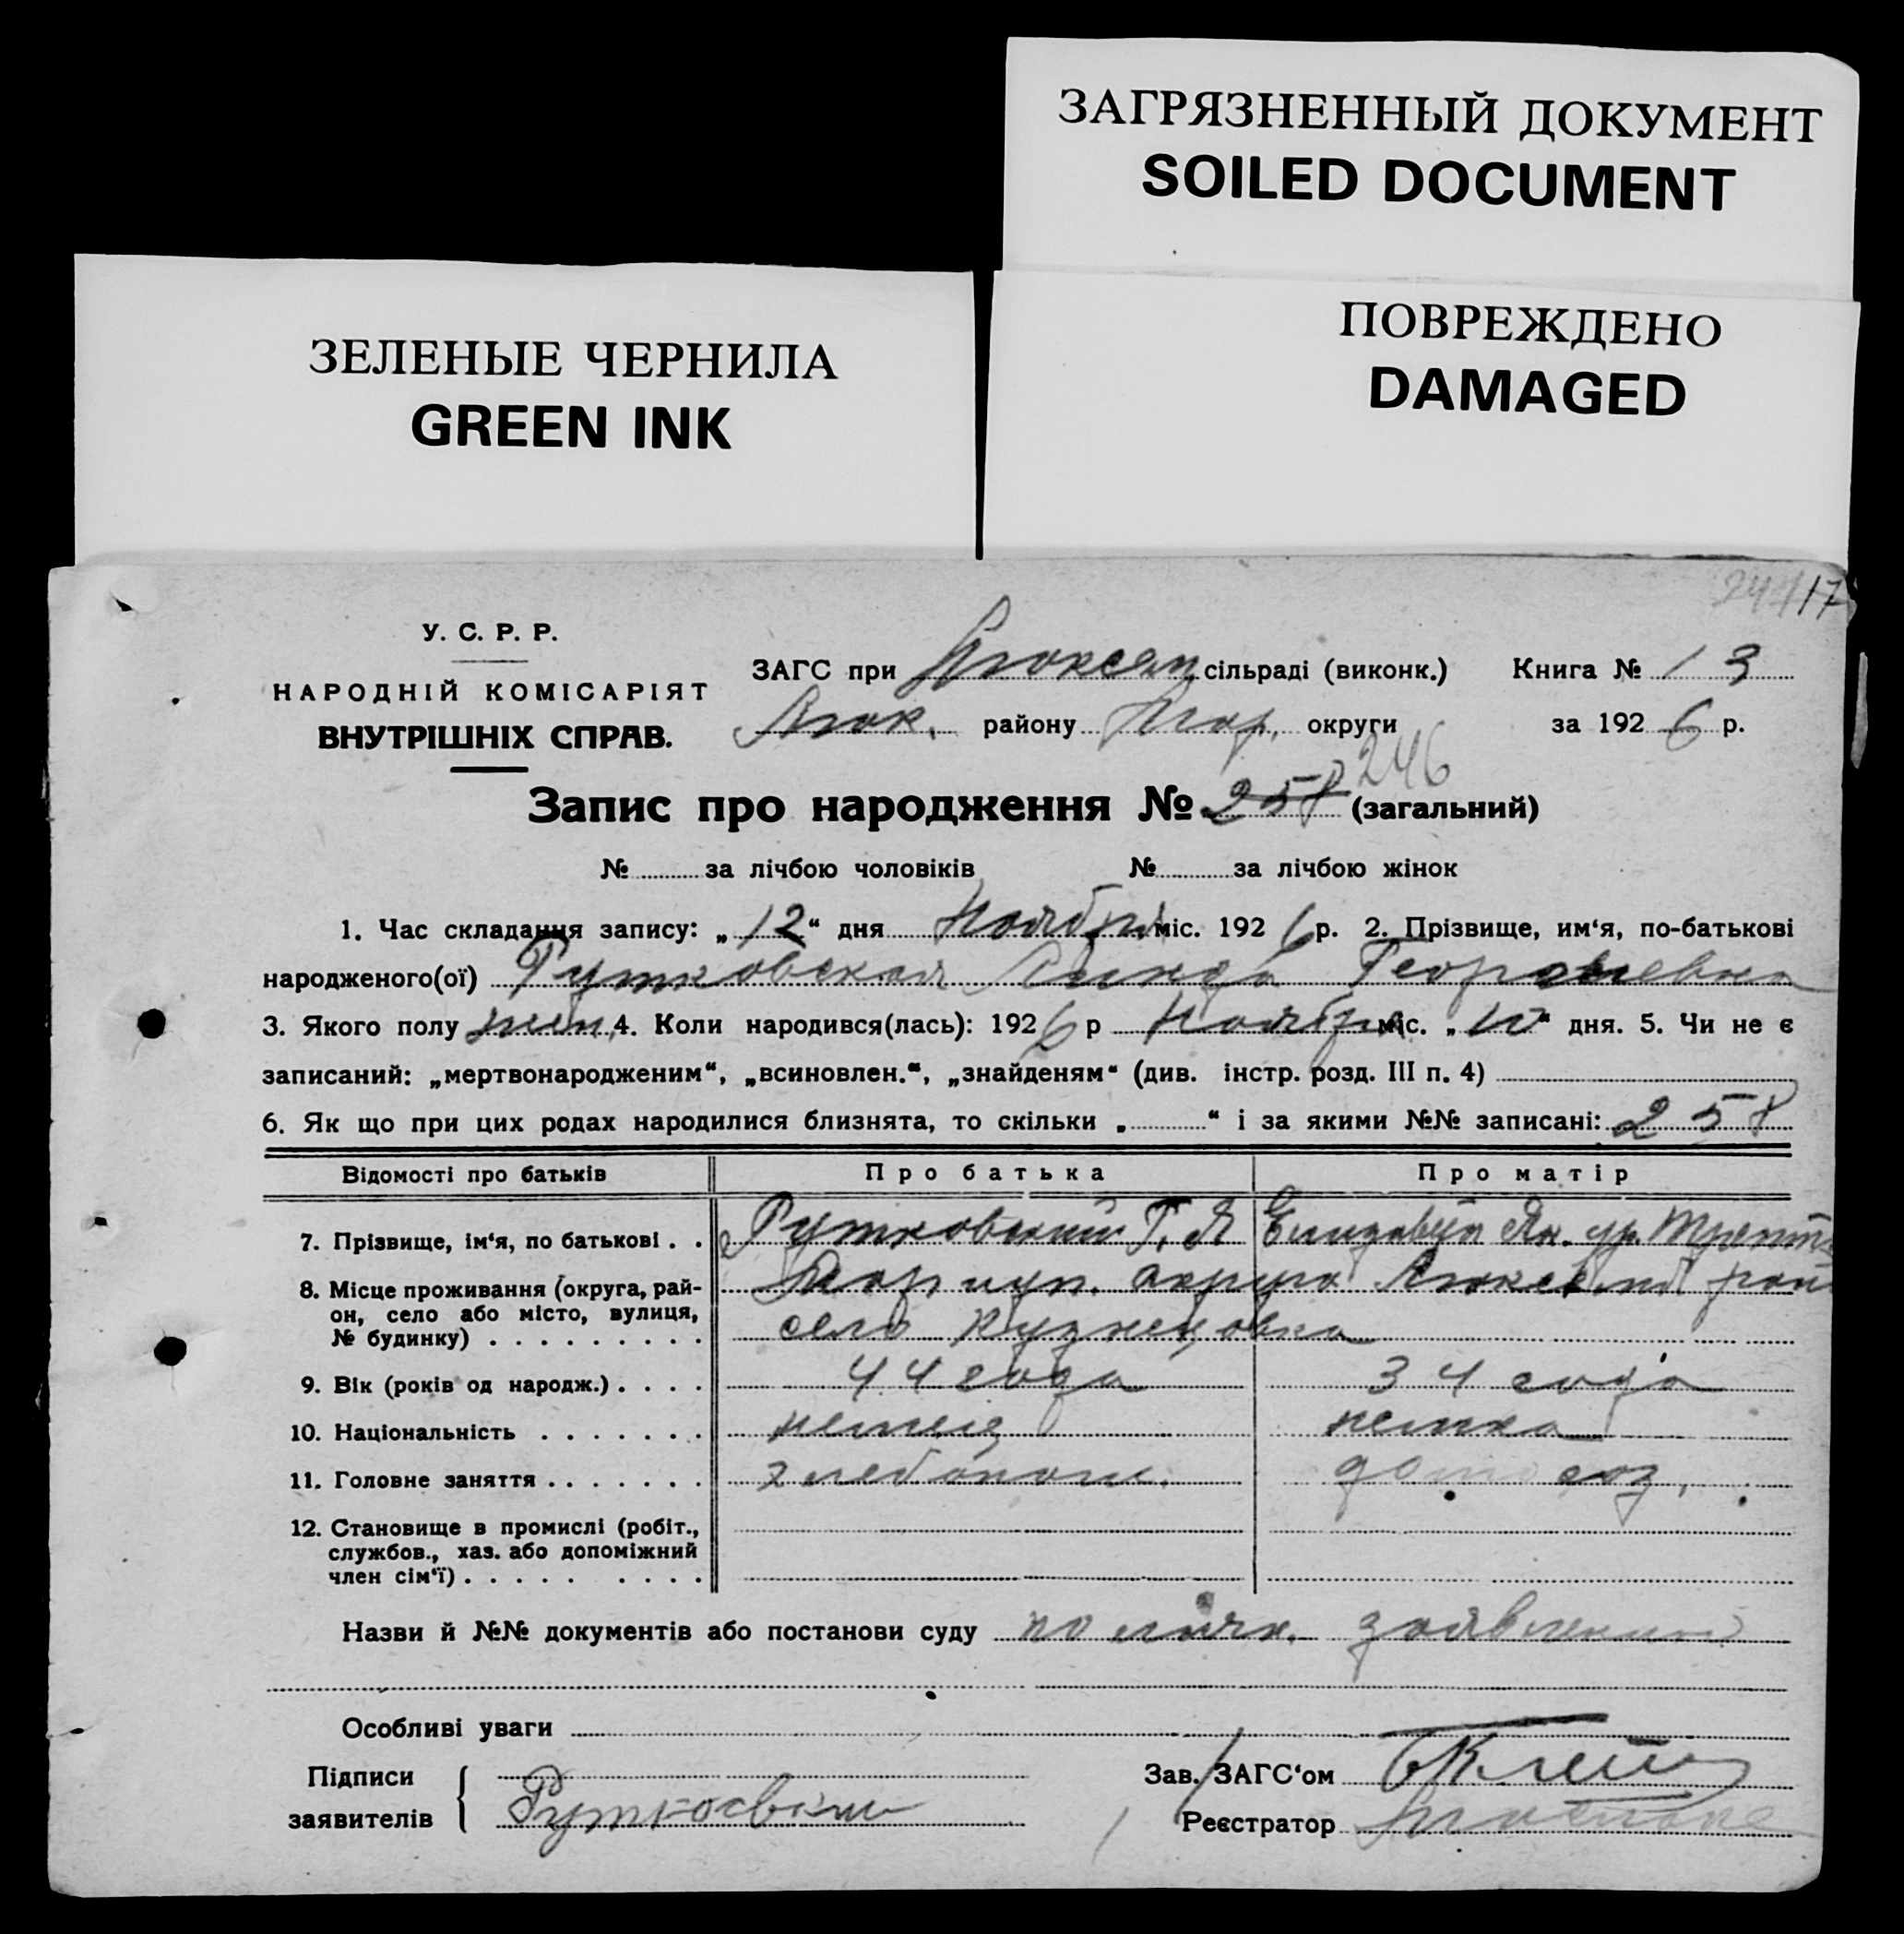 ЗАГРЯЗНЕННЫЙ ДОКУМЕНТ
SOILED DOCUMENT
ЗЕЛЕНЫЕ ЧЕРНИЛА
GREEN INK
ПОВРЕЖДЕНО
DAMAGED
17
У. С. Р. Р.
НАРОДНІЙ КОМІСАРІЯТ
ВНУТРІШНІХ СПРАВ.
ЗАГС при сільраді (виконк.) Книга № 13
району округи за 1926 р.
246
Запис про народження № 258 (загальний)
№ за лічбою чоловіків № за лічбою жінок
1. Час складання запису: „12“ дня Ноября міс. 1926 р. 2. Прізвище, им‘я, по-батькові
народженого(ої) Рутковская Линда Георгиевна
3. Якого полу жен. 4. Коли народився(лась): 1926 р Ноября міс. „10“ дня. 5. Чи не є
записаний: „мертвонародженим“, „всиновлен.“, „знайденям“ (див. інстр. розд. III п. 4)
6. Як що при цих родах народилися близнята, то скільки „ “ і за якими №№ записані: 258
Відомості про батьків Про батька Про матір
7. Прізвище, ім‘я, по батькові . . Рутковский Г. Я Елизавета Як. ур.
8. Місце проживання (округа, рай-
он, село або місто, вулиця,
№ будинку) . . . . . . . . . Мариуп. округа район
село Кузнецовка
9. Вік (років од народж.) . . . . 44 года 34 года
10. Національність . . . . . . . немец немка
11. Головне заняття . . . . . . . хлебопаш. домохоз.
12. Становище в промислі (робіт.,
службов., хаз. або допоміжний
член сім‘ї) . . . . . . . . .
Назви й №№ документів або постанови суду по личн. заявлению
Особливі уваги
Підписи
заявителів Рутковский
Зав. ЗАГС‘ом
Реєстратор